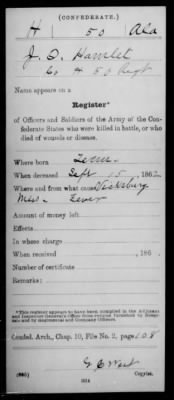 (CONFEDERATE.)
H 50 Ala
J. D. Hamlet
Co H 50 Regt
Name appears on a
Register*
of Officers and Soldiers of the Army of the Con-
federate States who were killed in battle, or who
died of wounds or disease.
Where born Tenn.
When deceased Sept 15, 1862
Where and from what cause Vicksburg
Miss. Fever
Amount of money left
Effects
In whose charge
When received , 186 .
Number of certificate
Remarks:
*This register appears to have been compiled in the Adjutant
and Inspector General's Office from returns furnished by Surge-
ons in charge and Company Officers.
Confed. Arch., Chap. 10, File No. 2, page 108
Copyist.